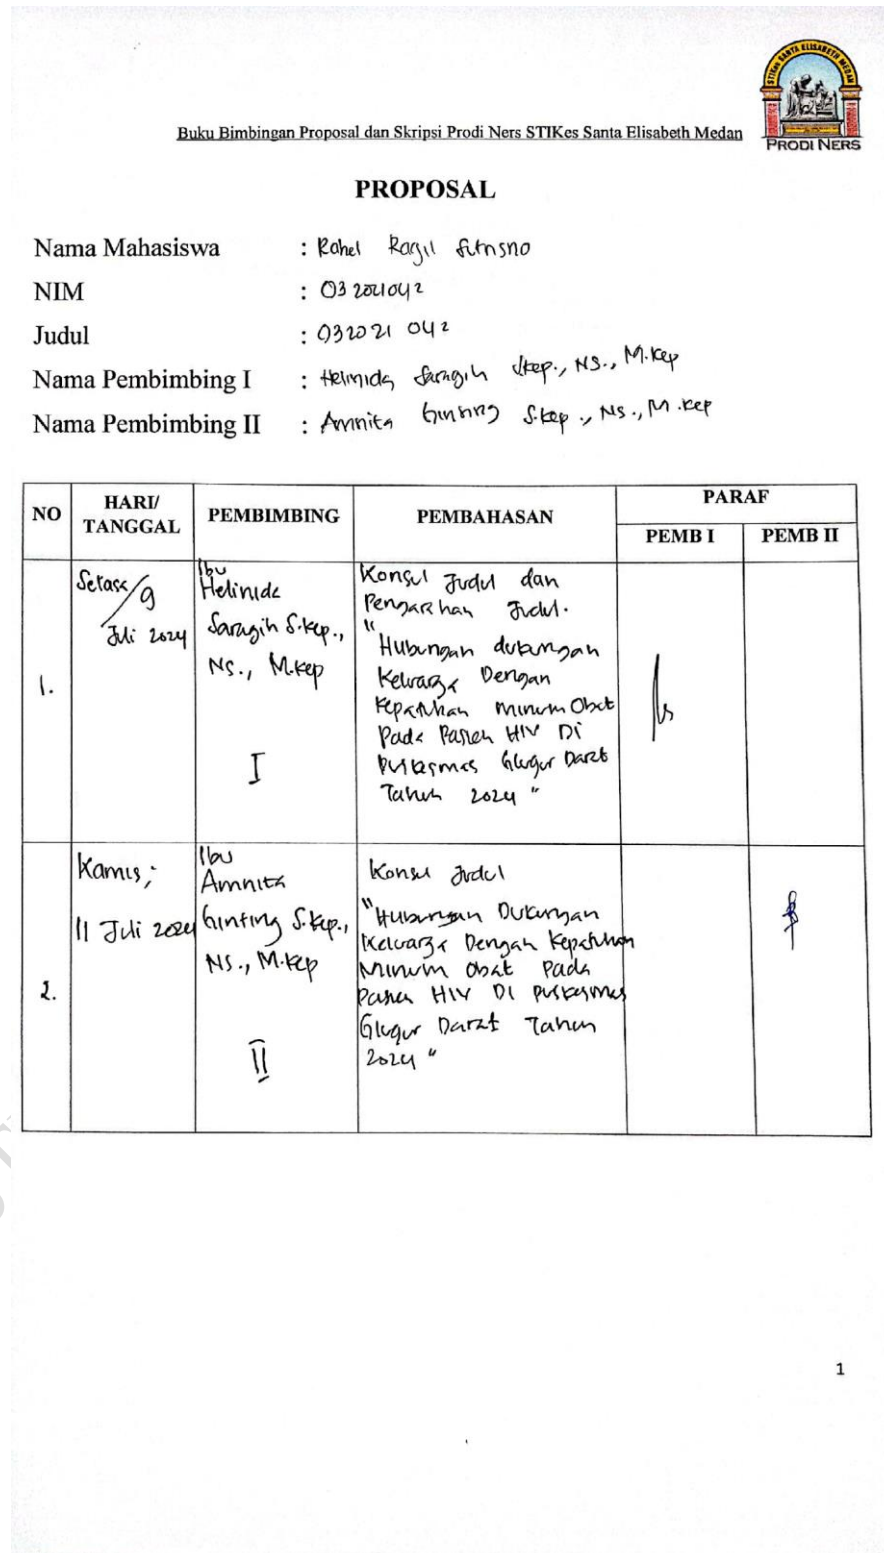 STIKes SANTA ELISABETH MEDAN
PRODI NERS
Buku Bimbingan Proposal dan Skripsi Prodi Ners STIKes Santa Elisabeth Medan
PROPOSAL
Nama Mahasiswa : Rahel Ragil
NIM : 032021042
Judul : 032021 042
Nama Pembimbing I : Helinida Saragih Skep., NS., M.Kep
Nama Pembimbing II : Amnita Ginting S.kep., Ns., M.kep
NO HARI/ TANGGAL PEMBIMBING PEMBAHASAN PARAF
PEMB I PEMB II
1.
Selasa/9
Juli 2024
Ibu
Helinida
Saragih S.kep.,
NS., M.kep
I
Konsul Judul dan
Pengarahan Judul.
"
Hubungan dukungan
Keluarga Dengan
Kepatuhan minum Obat
Pada Pasien HIV Di
Puskesmas Glugur Darat
Tahun 2024 "
2.
Kamis,
11 Juli 2024
Ibu
Amnita
Ginting S.kep.,
NS., M.kep
II
Konsul Judul
"Hubungan Dukungan
Keluarga Dengan Kepatuhan
Minum Obat Pada
Pasien HIV Di Puskesmas
Glugur Darat Tahun
2024 "
1